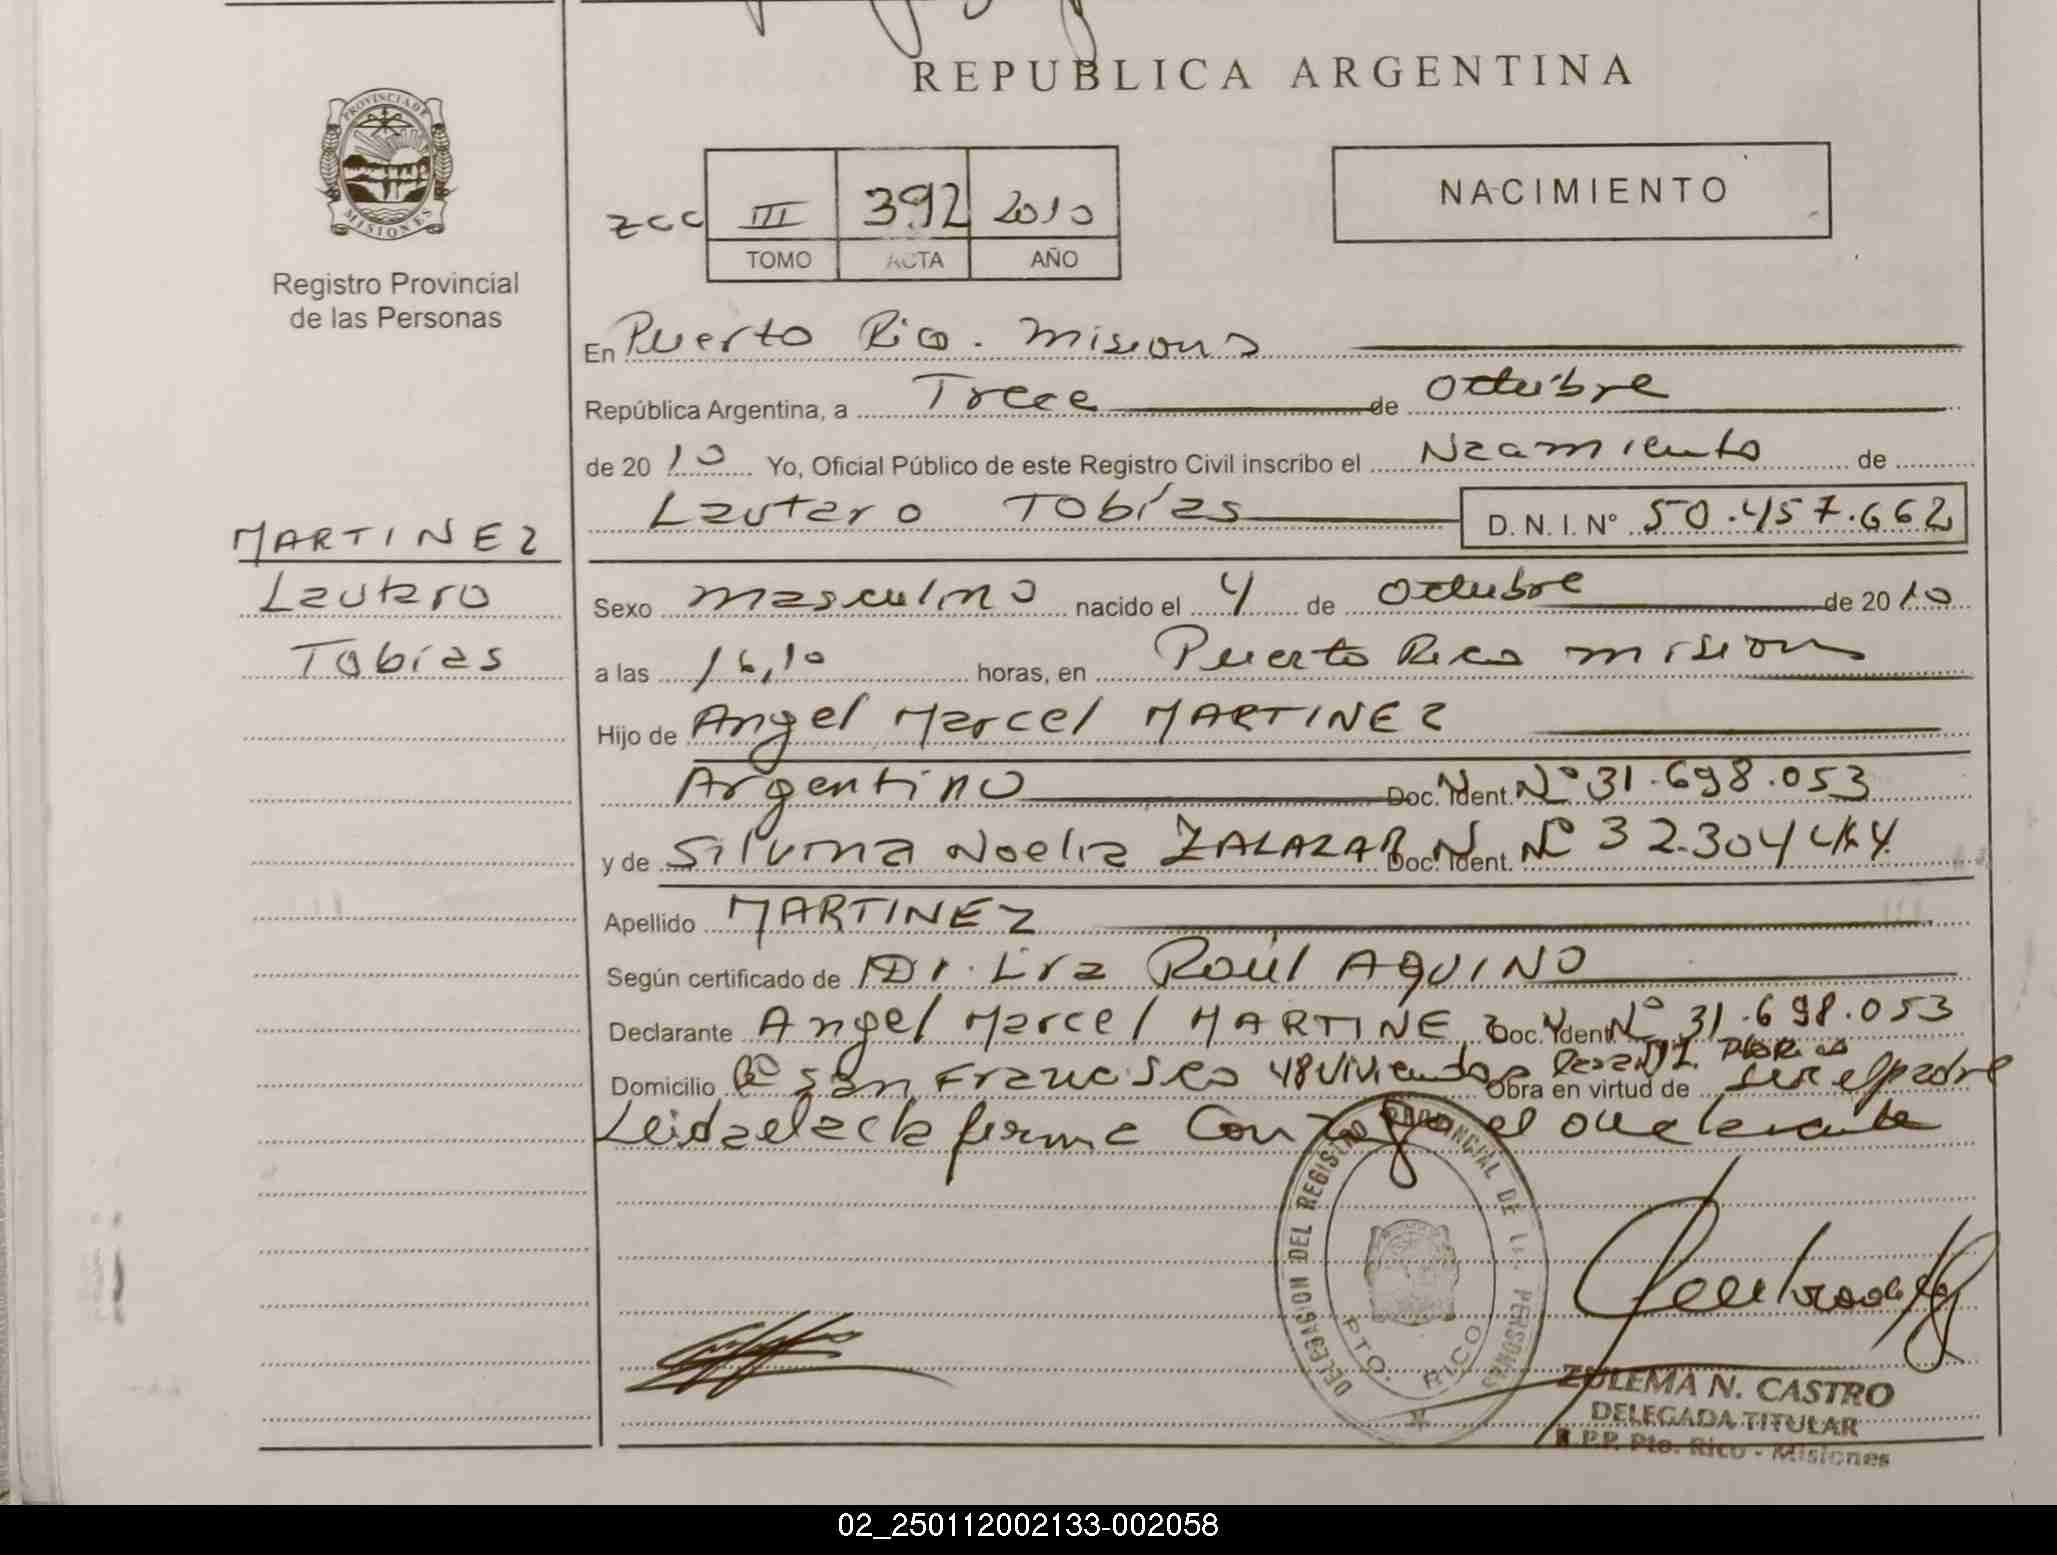 REPUBLICA ARGENTINA
PROVINCIA DE
MISIONES
Registro Provincial
de las Personas
zcc III 392 2010
TOMO ACTA AÑO
NACIMIENTO
En Puerto Rico. Misiones
República Argentina, a Trece de Octubre
de 2010 Yo, Oficial Público de este Registro Civil inscribo el Nacimiento de
Lautaro Tobías D. N. I. N° 50.457.662
MARTINEZ
Lautaro
Tobías
Sexo masculino nacido el 4 de Octubre de 2010
a las 16,10 horas, en Puerto Rico misiones
Hijo de Angel Marcel MARTINEZ
Argentino Doc. Ident. N° 31.698.053
y de Silvina Noelia ZALAZAR Doc. Ident. N° 32.304
Apellido MARTINEZ
Según certificado de Dr. Raúl AQUINO
Declarante Angel Marcel MARTINEZ Doc. Ident. N° 31.698.053
Domicilio Bº San Francisco 48 Viviendas Obra en virtud de ser el padre
Leida el acta firma Conmigo el declarante
DELEGACION DEL REGISTRO PROVINCIAL DE LAS PERSONAS
PTO. RICO
ZULEMA N. CASTRO
DELEGADA TITULAR
R.P.P. Pto. Rico - Misiones
02_250112002133-002058